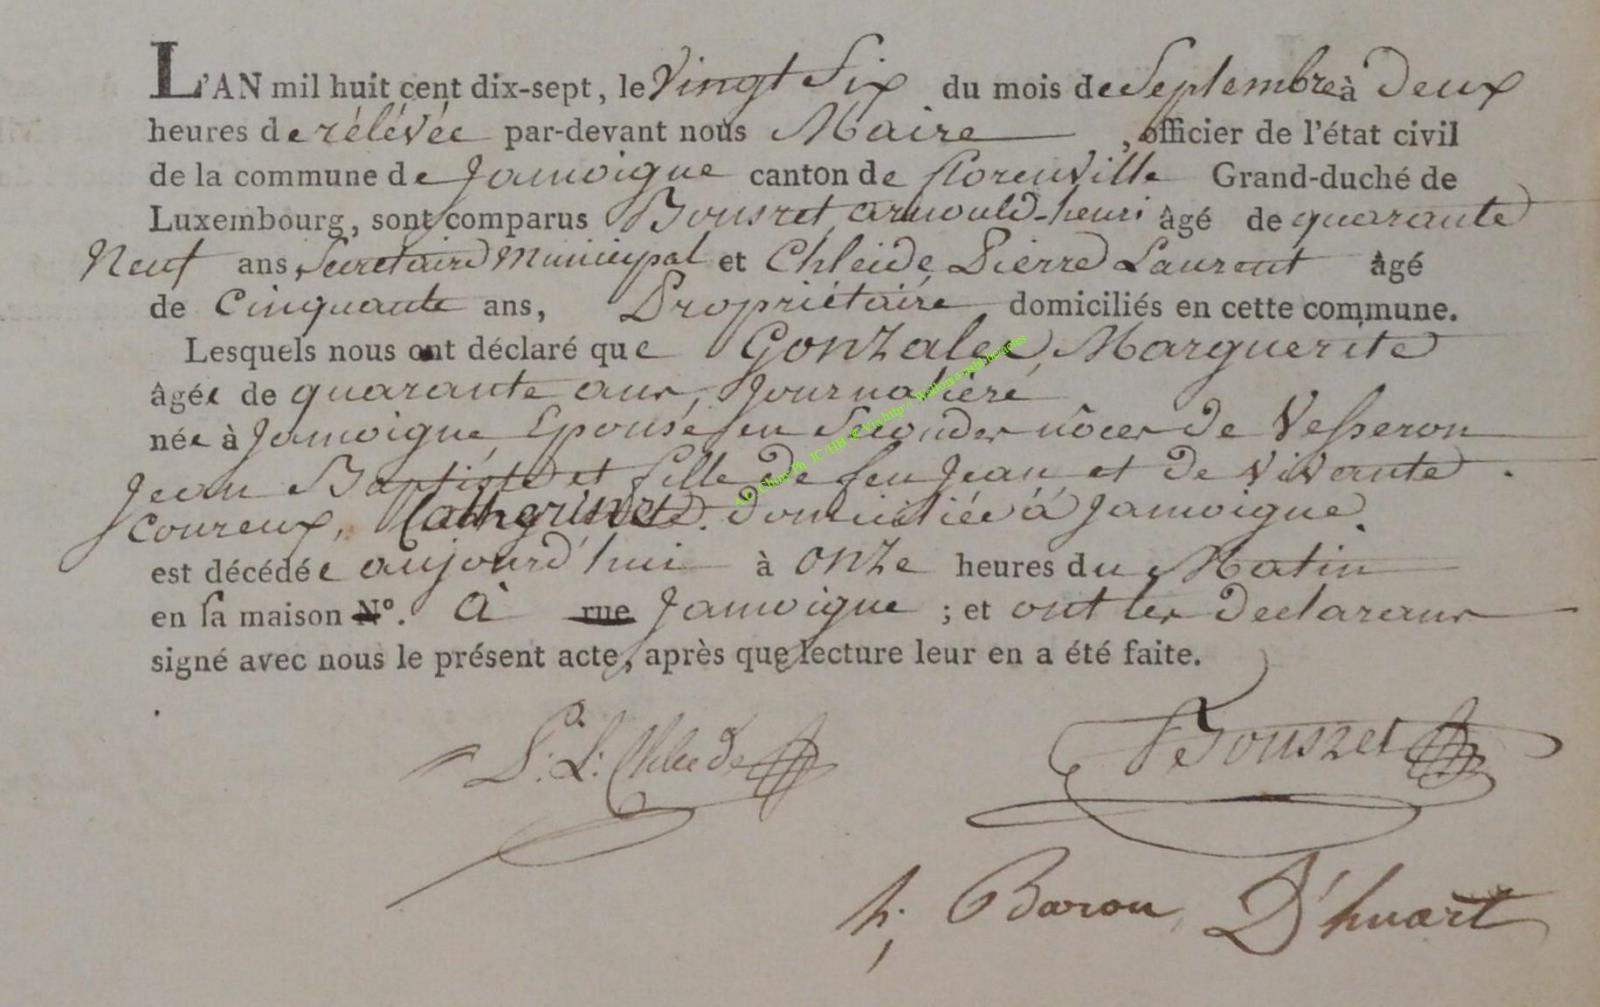 L'AN mil huit cent dix-sept, le Vingt Six du mois de Septembre à Deux
heures de rélévée par-devant nous Maire, officier de l'état civil
de la commune de Jamoigne canton de florenville Grand-duché de
Luxembourg, sont comparus Bousret arnould-henri âgé de quarante
Neuf ans, Secretaire Municipal et Chleide Pierre Laurent âgé
de Cinquante ans, Propriétaire domiciliés en cette commune.
Lesquels nous ont déclaré que Gonzalee Marguerite
âgée de quarante ans, Journalière
née à Jamoigne Epouse en Secondes nôces de Vesseron
Jean Baptiste et fille de feu Jean et de Vivante
Coureux, domiciliée à Jamoigne.
est décédée aujourd'hui à onze heures du Matin
en sa maison N°. à rue Jamoigne ; et ont les declarans
signé avec nous le présent acte, après que lecture leur en a été faite.
P: L: Chleide
Bousret
h; Baron D'huart